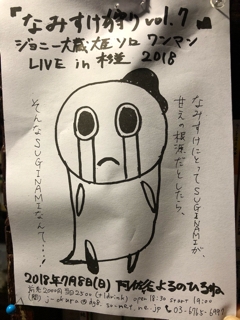 「なみすけ狩り vol.7」
ジョニー大蔵大臣 ソロ ワンマン
LIVE in 杉並 2018
なみすけにとってSUGINAMIが、
甘えの根源だとしたら、
そんなSUGINAMIなんて…!
2018年7月8日(日) 阿佐谷よるのひるね
open 18:30 start 19:00